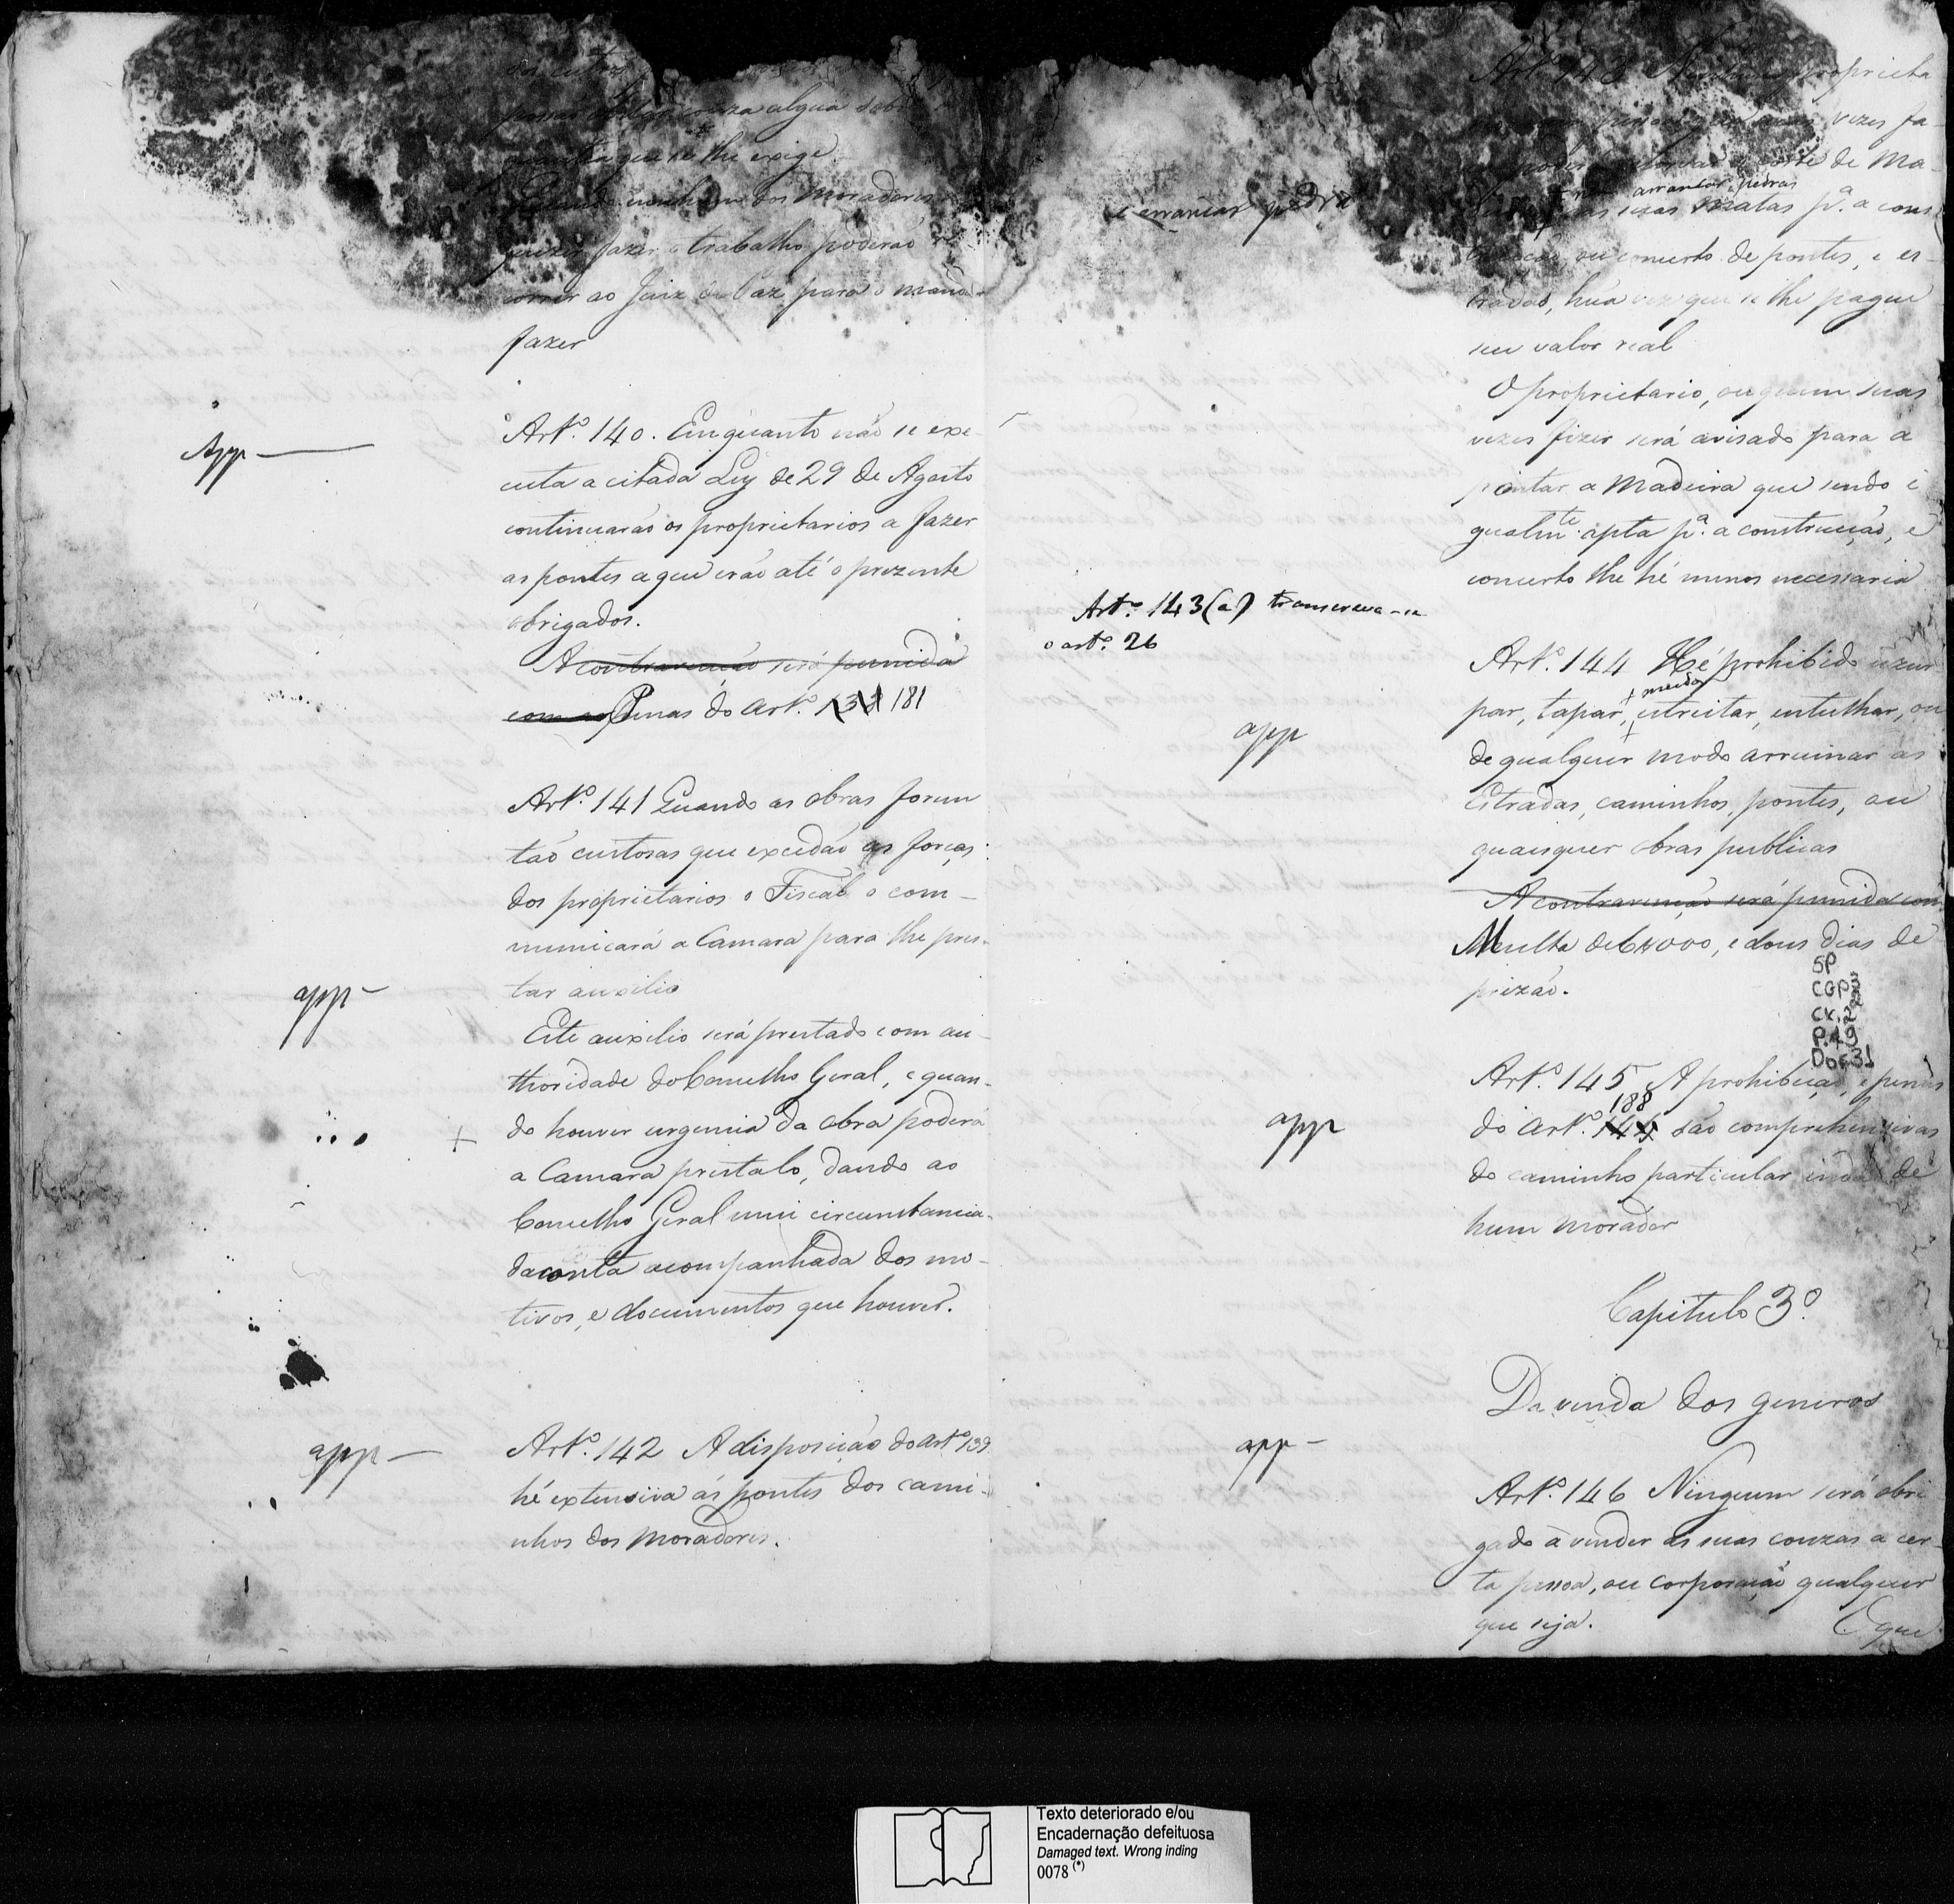 couza algũa sobre
quantia que se lhe exige.
Quando nenhum dos Moradores
queira fazer o trabalho poderáõ re-
correr ao Juiz de Paz para o mandar
fazer
App
Artº. 140. Emquanto não se exe-
cuta a citada Ley de 29 de Agosto
continuaráõ os proprietarios a fazer
as pontes a que eráõ até o prezente
obrigados.
A contravenção será punida
com as Penas do Artº. 181
Artº. 141 Quando as obras forem
taõ custosas que excedaõ as forças
dos proprietarios o Fiscal o com-
municará a Camara para lhe pres-
tar auxilio
app
Este auxilio será prestado com au-
thoridade do Conselho Geral, e quan-
do houver urgencia da obra poderá
a Camara prestalo, dando ao
Conselho Geral uma circumstancia-
da conta acompanhada dos mo-
tivos, e documentos que houver.
app
Artº. 142 A disposição do Artº 139
hé extensiva ás pontes dos cami-
nhos dos Moradores.
e arrancar pedra
Artº 143 Nenhum proprieta
vezes fa
córte de Ma-
arrancar pedras
nas suas Matas pª. a cons
trucção, ou concerto de pontes, e es-
tradas, hũa vez que se lhe pague
seu valor real
O proprietario, ou quem suas
vezes fizer será avisado para a
pontar a Madeira que sendo i
gualmte. apta pª. a construcçaõ, e
concerto lhe hé menos necessaria
Artº. 143 (a) transcreva-se
o artº. 26
Artº. 144 Hé prohibido uzur
par, tapar, mudar, estreitar, entulhar, ou
app
de qualquer modo arruinar as
Estradas, caminhos, pontes, ou
quaesquer obras publicas
A contravenção será punida com
Multa de 6$000, e dous dias de
prizaõ.
SP
CGP3
CX.2
P.49
Doc31
Artº. 145 A prohibiçaõ, e penas
188
app
do Artº. 144 saõ comprehensivas
do caminho particular inda de
hum morador
Capitulo 3º.
Da venda dos generos
app
Artº. 146 Ninguem será obri
gado a vender as suas couzas a cer-
ta pessoa, ou corporaçaõ qualquer
que seja.
E que
Texto deteriorado e/ou
Encadernação defeituosa
Damaged text. Wrong inding
0078 (*)